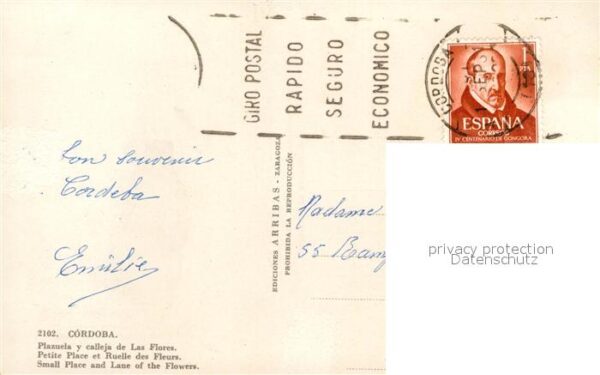 GIRO POSTAL
RAPIDO
SEGURO
ECONOMICO
CORDOBA
1
PTA
ESPAÑA
CORREOS
IV CENTENARIO DE GONGORA
bon souvenir
Cordeba
Emilie
EDICIONES ARRIBAS - ZARAGOZA
PROHIBIDA LA REPRODUCCIÓN
Madame
55 Ramp
privacy protection
Datenschutz
2102. CÓRDOBA.
Plazuela y calleja de Las Flores.
Petite Place et Ruelle des Fleurs.
Small Place and Lane of the Flowers.